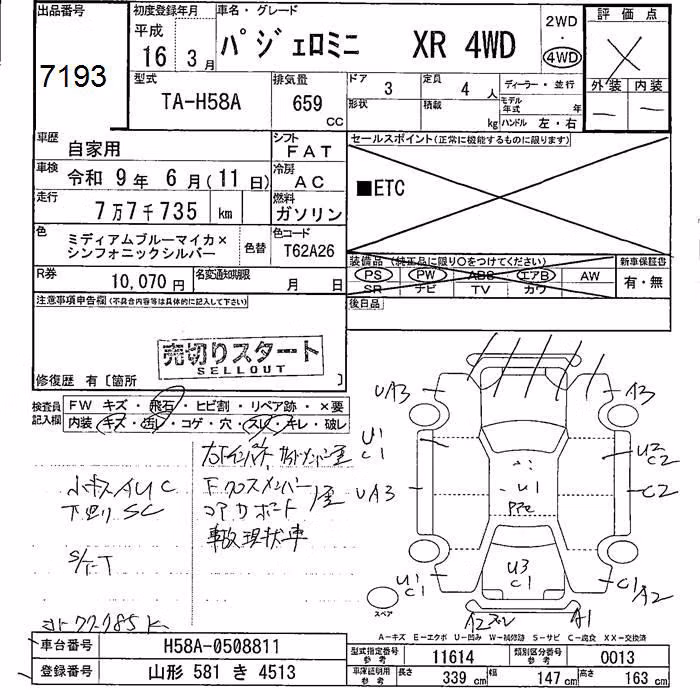 出品番号
7193
初度登録年月
平成
16年 3月
車名・グレード
パジェロミニ XR 4WD
2WD
・
4WD
評価点
X
外装 内装
— —
型式
TA-H58A
排気量
659
CC
ドア
3
定員
4人
ディーラー・並行
形状
積載
kg
モデル年式 年
ハンドル 左・右
車歴
自家用
シフト
FAT
セールスポイント(正常に機能するものに限ります)
■ETC
車検
令和 9年 6月(11日)
冷房
AC
走行
7万7千735 km
燃料
ガソリン
色
ミディアムブルーマイカ×
シンフォニックシルバー
色替
色コード
T62A26
装備品(純正品に限り○をつけてください)
新車保証書
PS PW ABS エアB AW
SR ナビ TV カワ
有・無
R券
10,070円
名変通知期限
月 日
後日品
注意事項申告欄(不具合内容等は具体的に記入して下さい)
売切りスタート
SELLOUT
修復歴 有〔箇所 〕
検査員
記入欄
FW キズ・飛石・ヒビ割・リペア跡・×要
内装・キズ・汚レ・コゲ・穴・スレ・キレ・破レ
小キズAUC
下廻りSC
S/T-T
Fクロスメンバー
コアサポート
事故現状車
UA3
A3
U1
C1
U2
C2
UA3
C2
U1
U3
C1
U1
C1
C1
A2
A1
スペア
A-キズ E-エクボ U-凹み W-補修跡 S-サビ C-腐食 XX-交換済
車台番号
H58A-0508811
登録番号
山形 581 き 4513
型式指定番号
参考
11614
類別区分番号
参考
0013
車庫証明用
参考
長さ
339 cm
幅
147 cm
高さ
163 cm